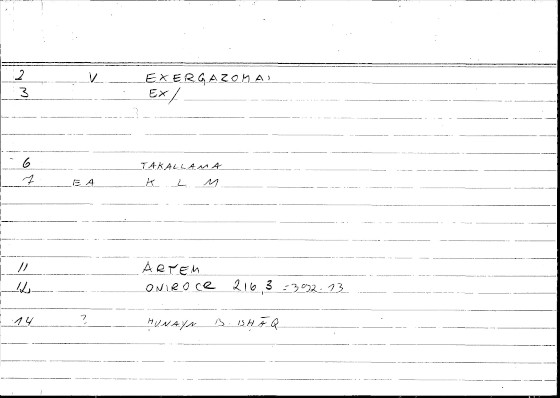 2 V EXERGAZOMAI
3 EX/
6 TAKALLAMA
7 EA K L M
11 ARTEM
12 ONIROCR 216,3 =392.13
14 ? ḤUNAYN B ISḤĀQ